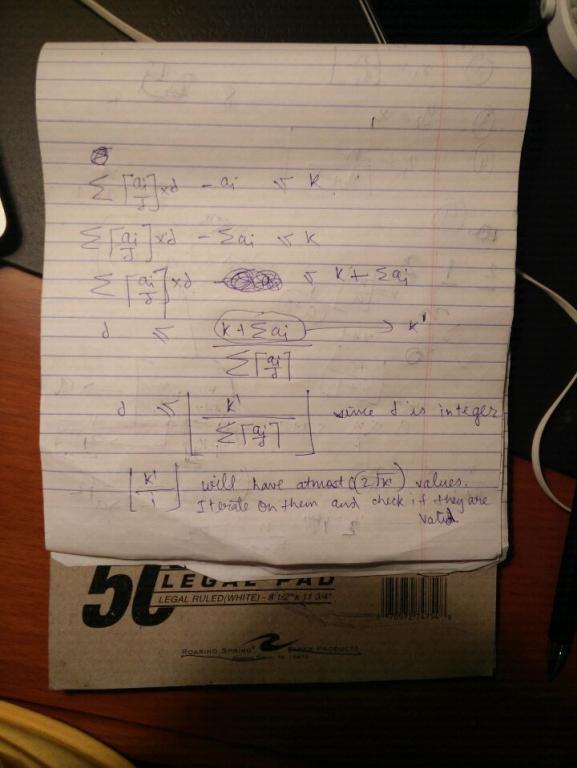 Σ ⌈ai/d⌉ xd - ai ≤ K
Σ ⌈ai/d⌉ xd - Σai ≤ K
Σ ⌈ai/d⌉ xd ≤ K + Σai
d ≤ (K + Σai) / Σ⌈ai/d⌉ → K'
d ≤ ⌊K' / Σ⌈ai/d⌉⌋ since d is integer
⌊K'/i⌋ will have atmost (2√K') values.
Iterate on them and check if they are
valid
50
LEGAL PAD
LEGAL RULED(WHITE) - 8 1/2" x 11 3/4"
ROARING SPRING PAPER PRODUCTS